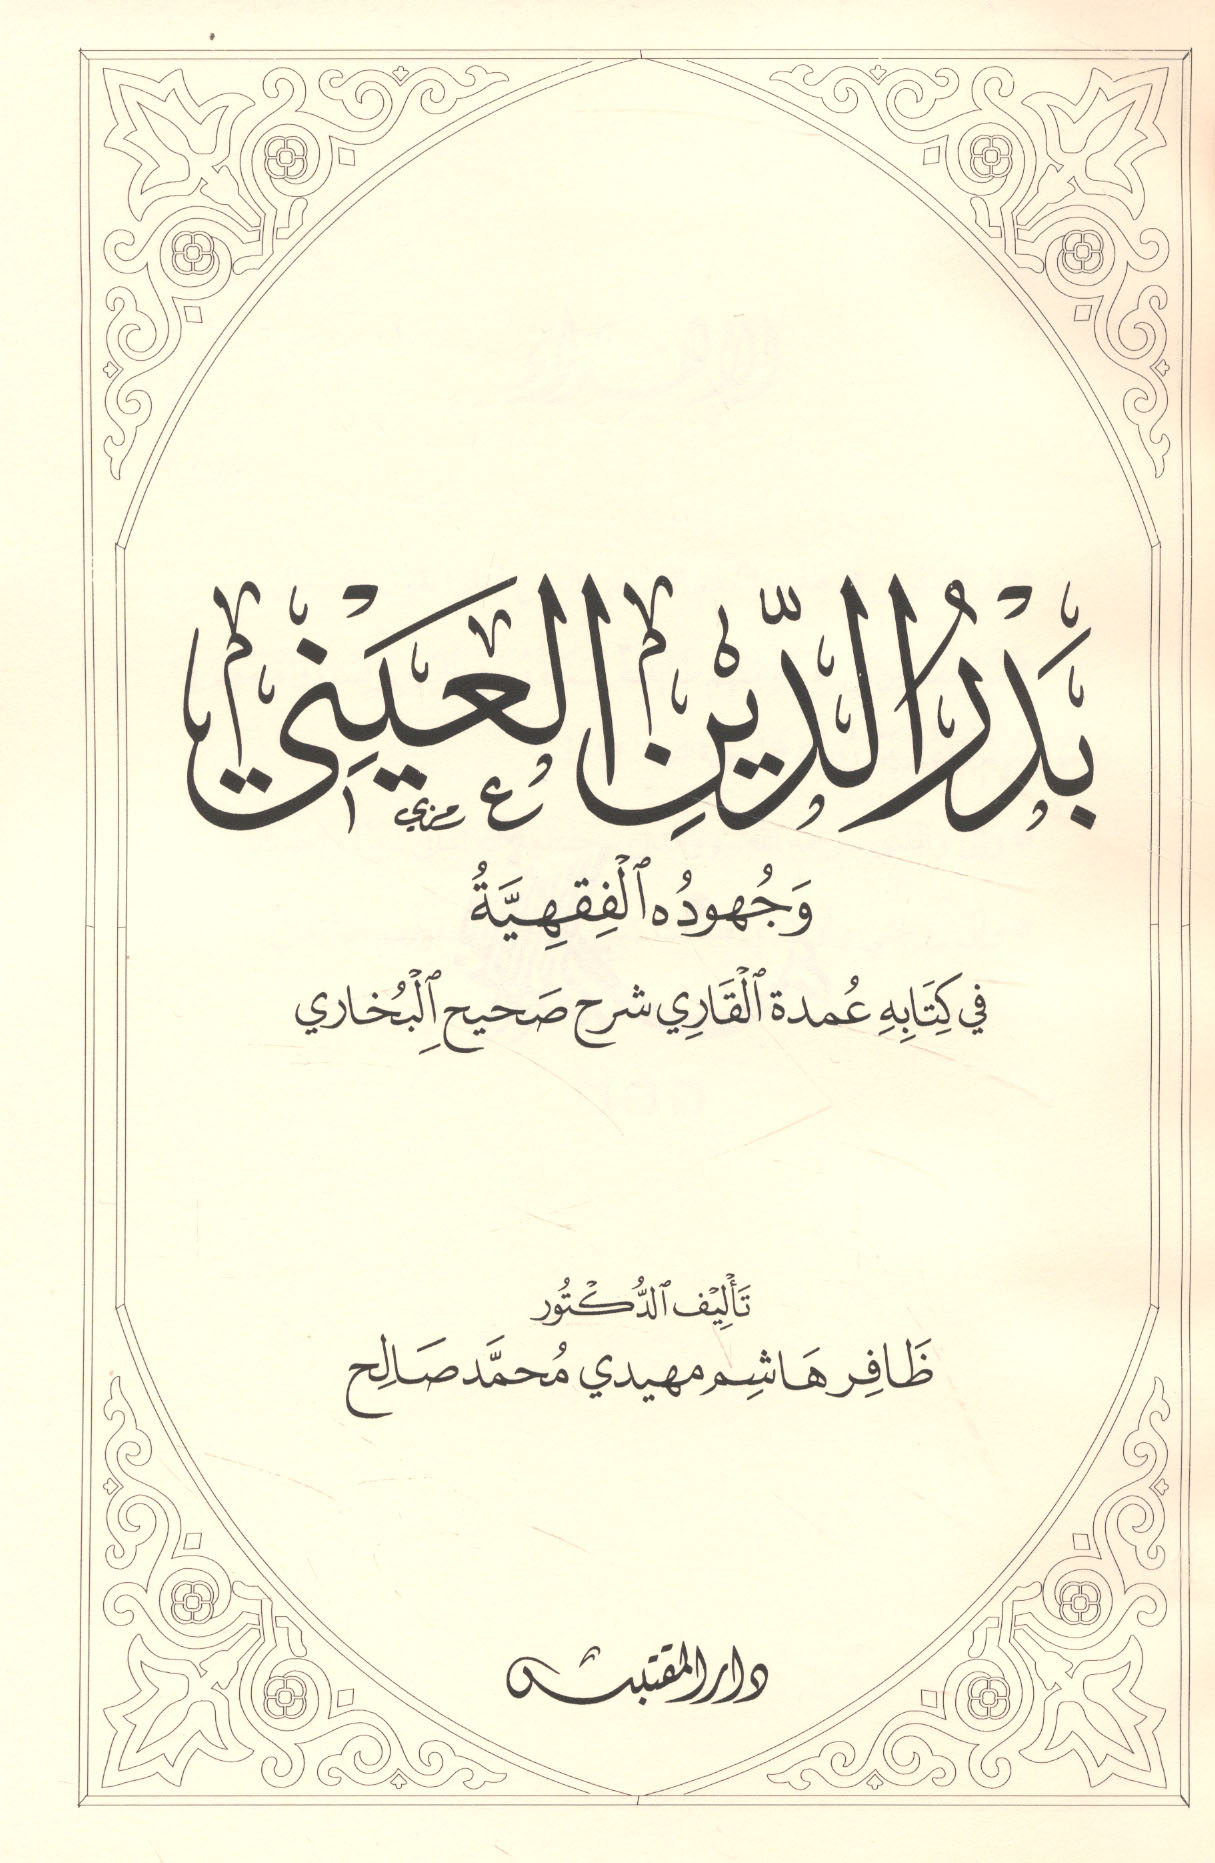 بَدْرُ الدِّينِ العَيْنِيّ
وَجُهودُه ٱلْفِقهِيَّةُ
في كِتَابِهِ عُمدة ٱلْقَارِي شرح صَحيح ٱلْبُخاري
تَأْلِيْف ٱلدُّكْتُور
ظَافِر هَاشِم مهيدي مُحمَّد صَالِح
دار المقتبس